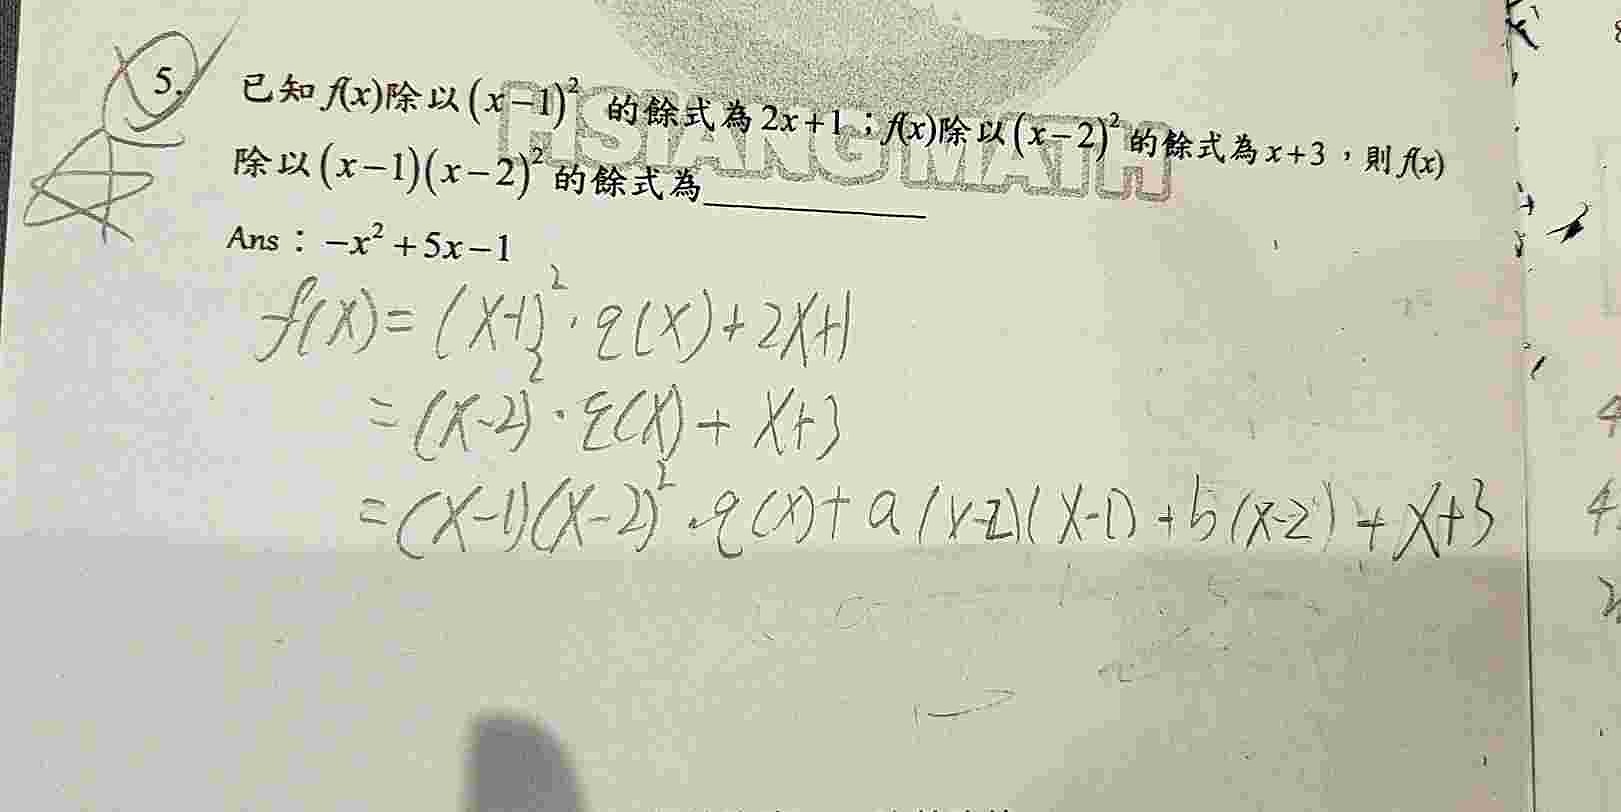 5. 已知 f(x)除以 (x-1)² 的餘式為 2x+1；f(x)除以 (x-2)² 的餘式為 x+3，則 f(x)
除以 (x-1)(x-2)² 的餘式為________
Ans：-x²+5x-1
f(x) = (x-1)²·q(x)+2x+1
= (x-2)²·q(x)+x+3
= (x-1)(x-2)²·q(x)+a(x-2)(x-1)+b(x-2)+x+3
HSIANG MATH